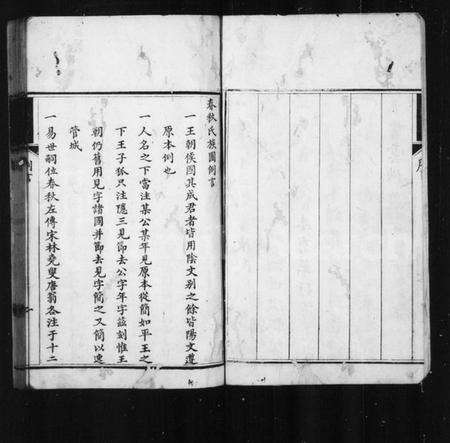 春秋氏族圖例言
一王朝侯國其成君者皆用陰文別之餘皆陽文遵
原本例也
一人名之下當注某公某年見原本從簡如平王之
下王子狐只注隱三見節去公字年字茲刻惟王
朝仍舊用見字諸國并節去見字簡之又簡以遠
管城
一易世嗣位春秋左傳宋林堯叟唐翁各注于十二